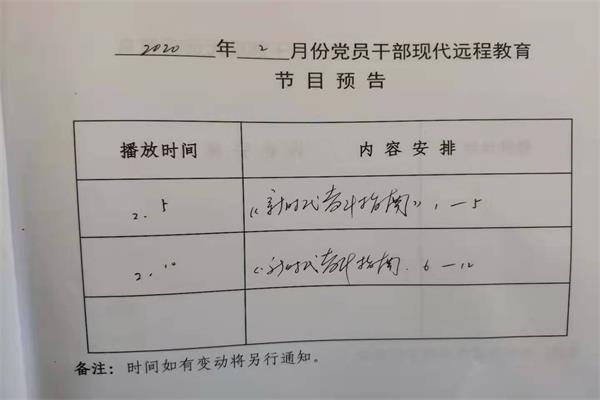 2020 年 2 月份党员干部现代远程教育
节目预告
播放时间 内容安排
2.5 《新时代奋斗指南》1—5
2.10 《新时代奋斗指南 6—12
备注：时间如有变动将另行通知。